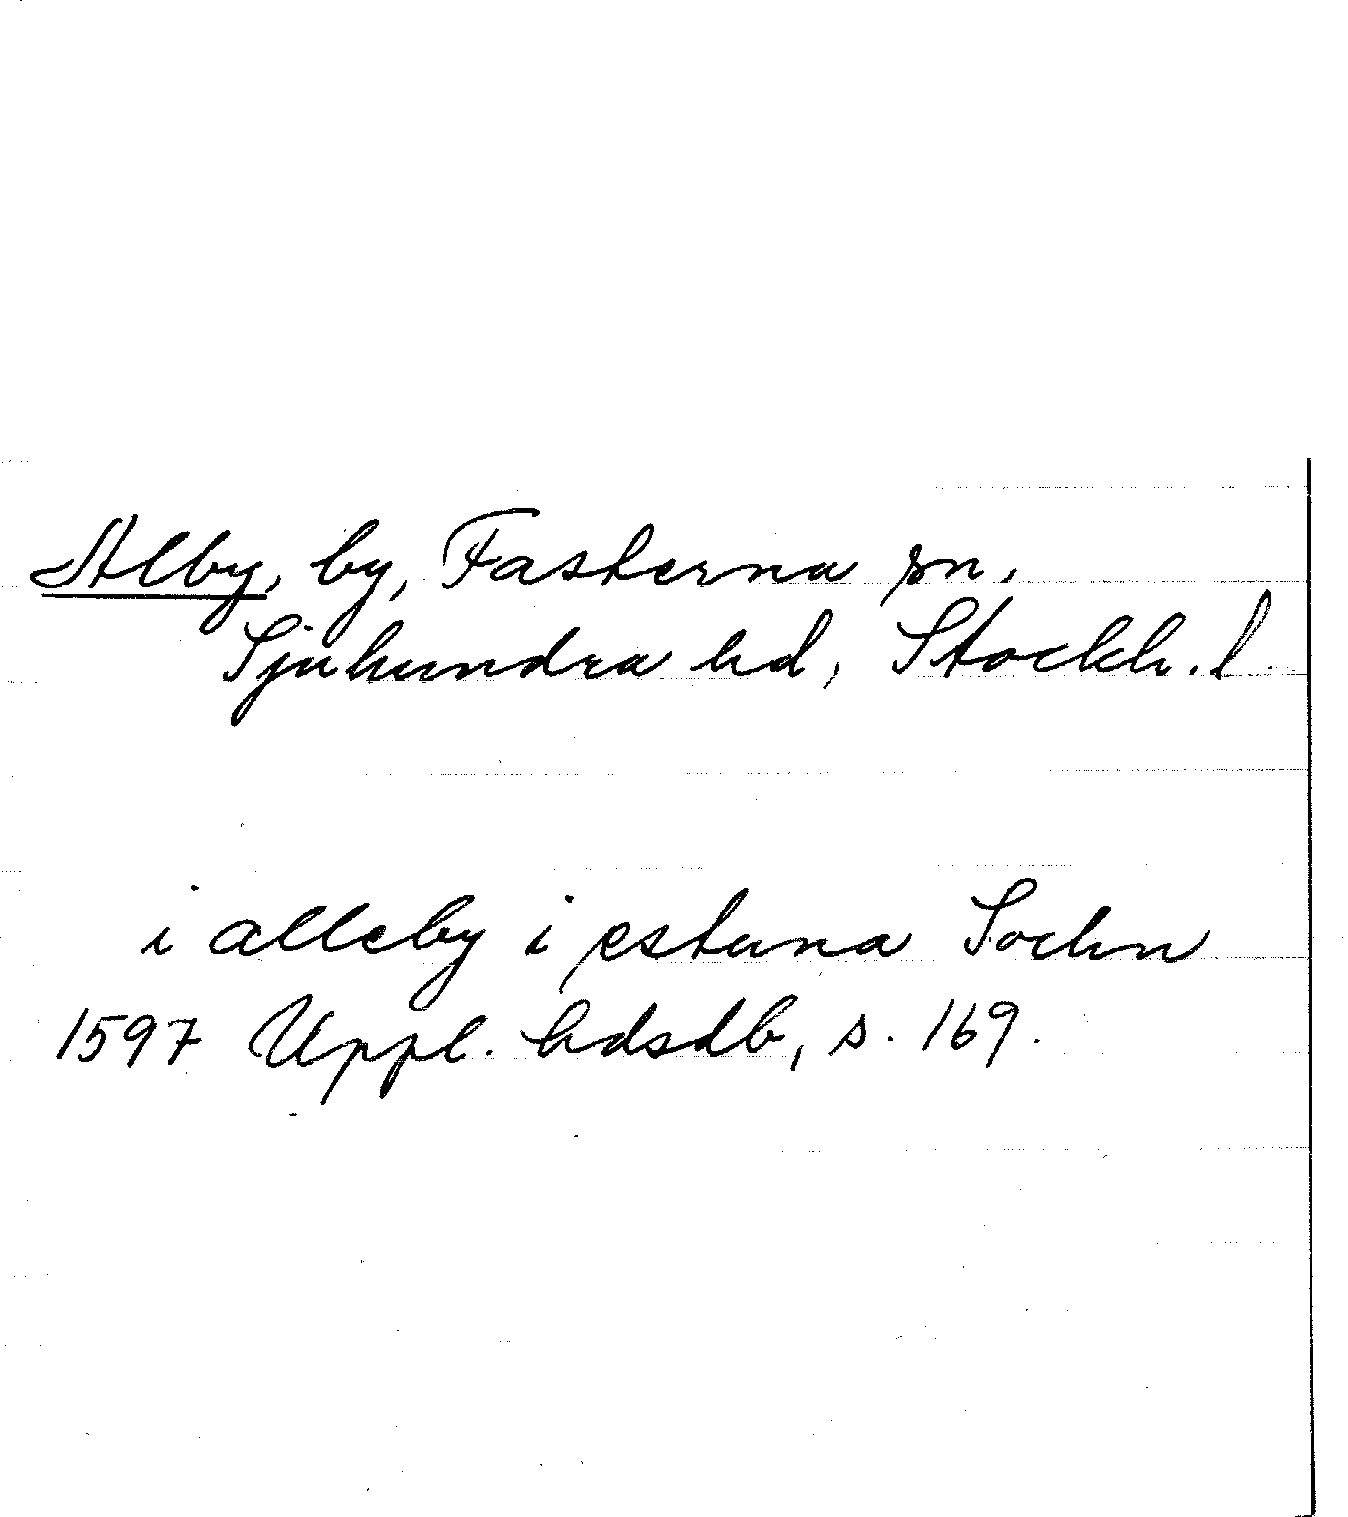 Alby, by, Fasterna sn,
Sjuhundra hd, Stockh. l
i alleby i estuna Sochn
1597 Uppl. hdsdb, s. 169.